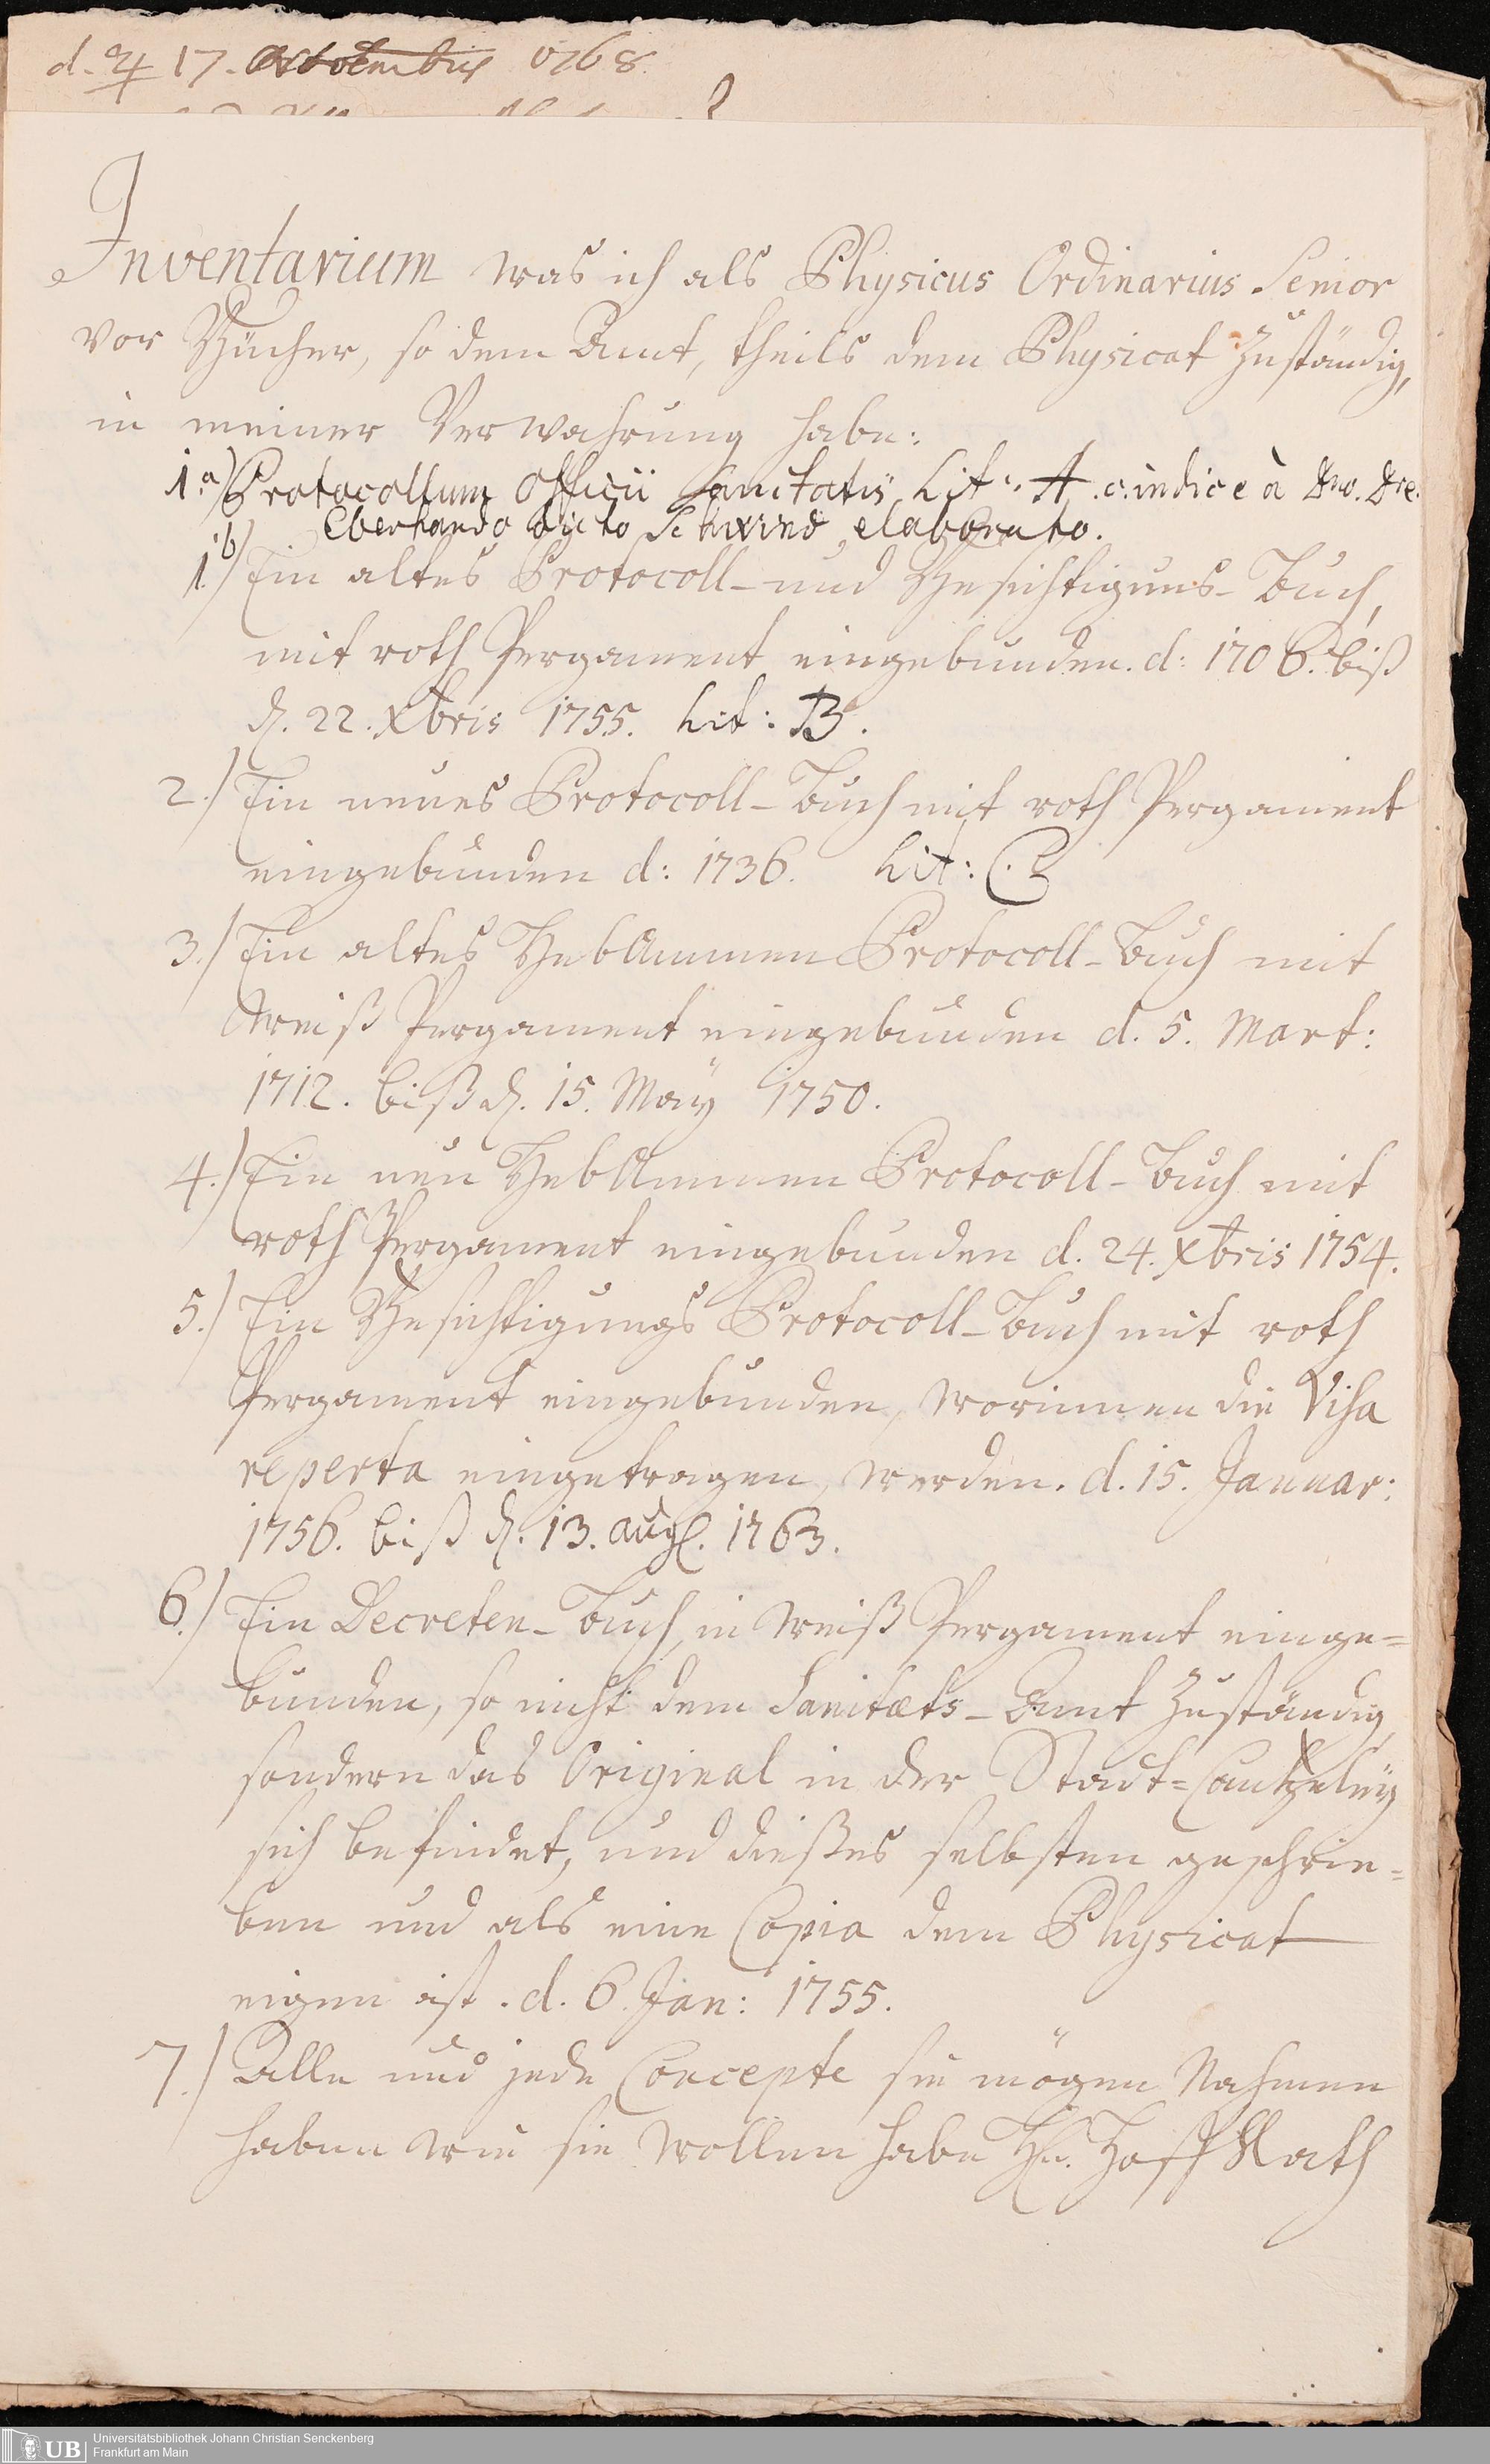 d. ♃ 17. 1768.
Inventarium was ich als Physicus Ordinarius Senior
vor Bücher, so dem Amt, theils dem Physicat zuständig,
in meiner Verwahrung habe:
1.a) Protocollum Officii Sanitatis, Lit: A. c. indice à Dno. Dre.
Eberhardo dicto Schwind elaborato.
1.b) Ein altes Protocoll- und Besichtiguns-Buch,
mit roth Pergament eingebunden. d: 1706. biß
d. 22. Xbris 1755. Lit: B.
2.) Ein neues Protocoll-Buch mit roth Pergament
eingebunden d: 1736. Lit: C.
3.) Ein altes HebAmmen Protocoll-Buch mit
weiß Pergament eingebunden d. 5. Mart:
1712. biß d. 15. Maÿ 1750.
4.) Ein neu HebAmmen Protocoll-Buch mit
roth Pergament eingebunden d. 24. Xbris 1754.
5.) Ein Besichtigungs Protocoll-Buch mit roth
Pergament eingebunden, worinnen die Visa
reperta eingetragen werden. d. 15. Januar:
1756. biß d. 13. aug. 1763.
6.) Ein Decreten-Buch, in weiß Pergament einge=
bunden, so nicht dem Sanitæts-Amt zuständig,
sondern das Original in der Stadt=Cantzeleÿ
sich befindet, und dießes selbsten geschrie=
ben und als eine Copia dem Physicat
eigen ist. d. 6. Jan: 1755.
7.) Alle und jede Concepte sie mögen Nahmen
haben wie sie wollen habe Hn. Hoff Rath
UB
Universitätsbibliothek Johann Christian Senckenberg
Frankfurt am Main